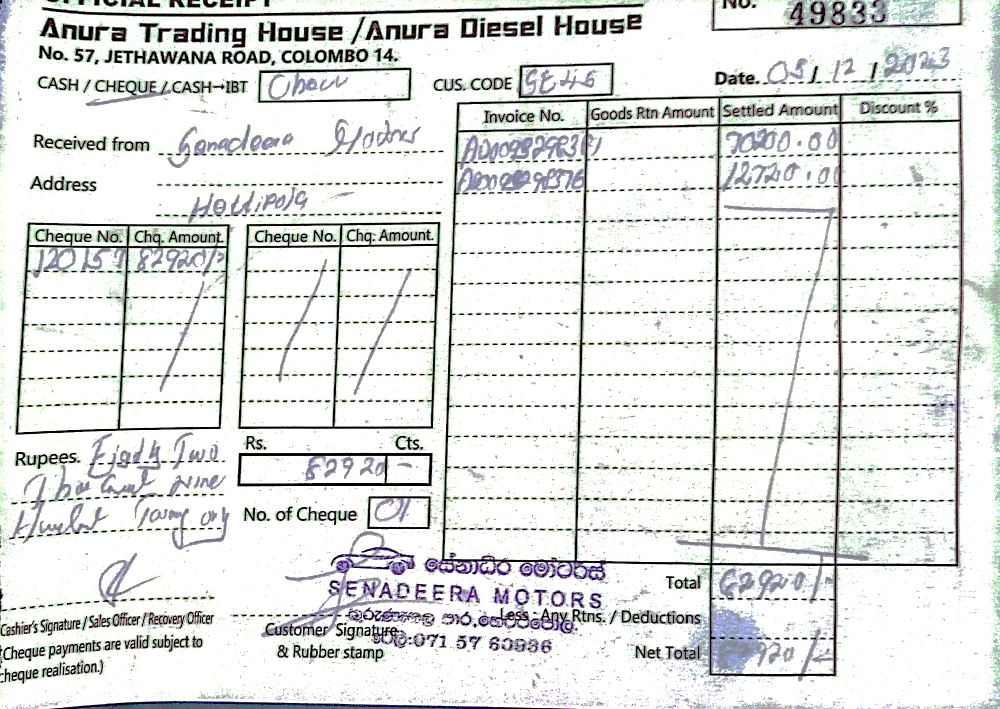 OFFICIAL RECEIPT
No. 49833
Anura Trading House /Anura Diesel House
No. 57, JETHAWANA ROAD, COLOMBO 14.
CASH / CHEQUE / CASH→IBT
CUS. CODE SE46
Date. 05 / 12 / 2023
Received from Senadeera
Address
Hettipola
Invoice No. Goods Rtn Amount Settled Amount Discount %
70200.00
12720.00
Cheque No. Chq. Amount. Cheque No. Chq. Amount.
120157 82920/-
Rupees. Eighty Two
Nine
only
Rs. Cts.
82920 -
No. of Cheque 01
සේනාධීර මෝටර්ස්
SENADEERA MOTORS
කුරුණෑගල පාර, හෙට්ටිපොල.
071 57 60936
Total 82920/-
Less : Any Rtns. / Deductions
Net Total 82920/-
Cashier's Signature / Sales Officer / Recovery Officer
(Cheque payments are valid subject to
cheque realisation.)
Customer Signature
& Rubber stamp